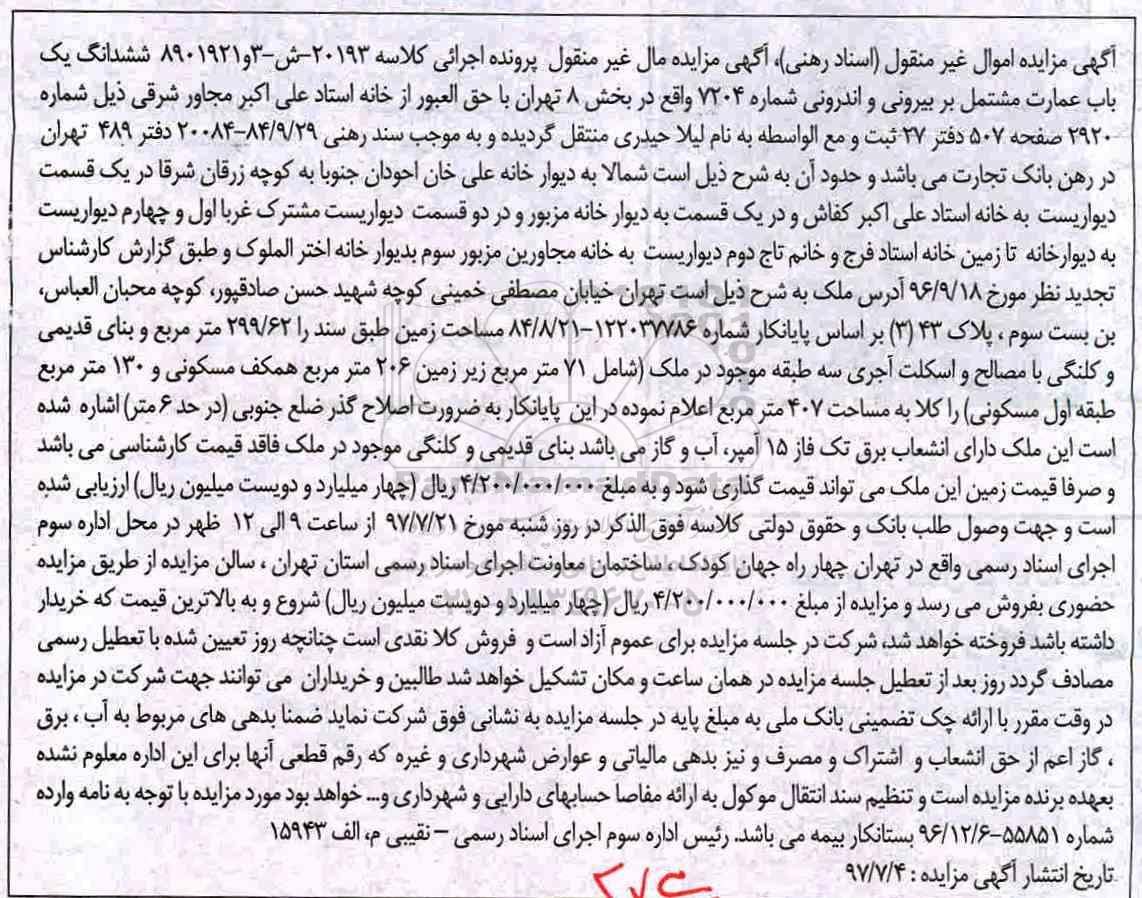 آگهی مزایده اموال غیر منقول (اسناد رهنی)، آگهی مزایده مال غیر منقول پرونده اجرائی کلاسه ۲۰۱۹۳-ش-۳و۸۹۰۱۹۲۱ ششدانگ یک
باب عمارت مشتمل بر بیرونی و اندرونی شماره ۷۲۰۴ واقع در بخش ۸ تهران با حق العبور از خانه استاد علی اکبر مجاور شرقی ذیل شماره
۲۹۲۰ صفحه ۵۰۷ دفتر ۲۷ ثبت و مع الواسطه به نام لیلا حیدری منتقل گردیده و به موجب سند رهنی ۸۴/۹/۲۹-۲۰۰۸۴ دفتر ۴۸۹ تهران
در رهن بانک تجارت می باشد و حدود آن به شرح ذیل است شمالا به دیوار خانه علی خان احودان جنوبا به کوچه زرقان شرقا در یک قسمت
دیواریست به خانه استاد علی اکبر کفاش و در یک قسمت به دیوار خانه مزبور و در دو قسمت دیواریست مشترک غربا اول و چهارم دیواریست
به دیوارخانه تا زمین خانه استاد فرج و خانم تاج دوم دیواریست به خانه مجاورین مزبور سوم بدیوار خانه اختر الملوک و طبق گزارش کارشناس
تجدید نظر مورخ ۹۶/۹/۱۸ آدرس ملک به شرح ذیل است تهران خیابان مصطفی خمینی کوچه شهید حسن صادقپور، کوچه محبان العباس،
بن بست سوم ، پلاک ۴۳ (۳) بر اساس پایانکار شماره ۱۲۲۰۳۷۷۸۶-۸۴/۸/۲۱ مساحت زمین طبق سند را ۲۹۹/۶۲ متر مربع و بنای قدیمی
و کلنگی با مصالح و اسکلت آجری سه طبقه موجود در ملک (شامل ۷۱ متر مربع زیر زمین ۲۰۶ متر مربع همکف مسکونی و ۱۳۰ متر مربع
طبقه اول مسکونی) را کلا به مساحت ۴۰۷ متر مربع اعلام نموده در این پایانکار به ضرورت اصلاح گذر ضلع جنوبی (در حد ۶ متر) اشاره شده
است این ملک دارای انشعاب برق تک فاز ۱۵ آمپر، آب و گاز می باشد بنای قدیمی و کلنگی موجود در ملک فاقد قیمت کارشناسی می باشد
و صرفا قیمت زمین این ملک می تواند قیمت گذاری شود و به مبلغ ۴/۲۰۰/۰۰۰/۰۰۰ ریال (چهار میلیارد و دویست میلیون ریال) ارزیابی شده
است و جهت وصول طلب بانک و حقوق دولتی کلاسه فوق الذکر در روز شنبه مورخ ۹۷/۷/۲۱ از ساعت ۹ الی ۱۲ ظهر در محل اداره سوم
اجرای اسناد رسمی واقع در تهران چهار راه جهان کودک ، ساختمان معاونت اجرای اسناد رسمی استان تهران ، سالن مزایده از طریق مزایده
حضوری بفروش می رسد و مزایده از مبلغ ۴/۲۰۰/۰۰۰/۰۰۰ ریال (چهار میلیارد و دویست میلیون ریال) شروع و به بالاترین قیمت که خریدار
داشته باشد فروخته خواهد شد، شرکت در جلسه مزایده برای عموم آزاد است و فروش کلا نقدی است چنانچه روز تعیین شده با تعطیل رسمی
مصادف گردد روز بعد از تعطیل جلسه مزایده در همان ساعت و مکان تشکیل خواهد شد طالبین و خریداران می توانند جهت شرکت در مزایده
در وقت مقرر با ارائه چک تضمینی بانک ملی به مبلغ پایه در جلسه مزایده به نشانی فوق شرکت نماید ضمنا بدهی های مربوط به آب ، برق
، گاز اعم از حق انشعاب و اشتراک و مصرف و نیز بدهی مالیاتی و عوارض شهرداری و غیره که رقم قطعی آنها برای این اداره معلوم نشده
بعهده برنده مزایده است و تنظیم سند انتقال موکول به ارائه مفاصا حسابهای دارایی و شهرداری و... خواهد بود مورد مزایده با توجه به نامه وارده
شماره ۵۵۸۵۱-۹۶/۱۲/۶ بستانکار بیمه می باشد. رئیس اداره سوم اجرای اسناد رسمی – نقیبی م، الف ۱۵۹۴۳
تاریخ انتشار آگهی مزایده : ۹۷/۷/۴